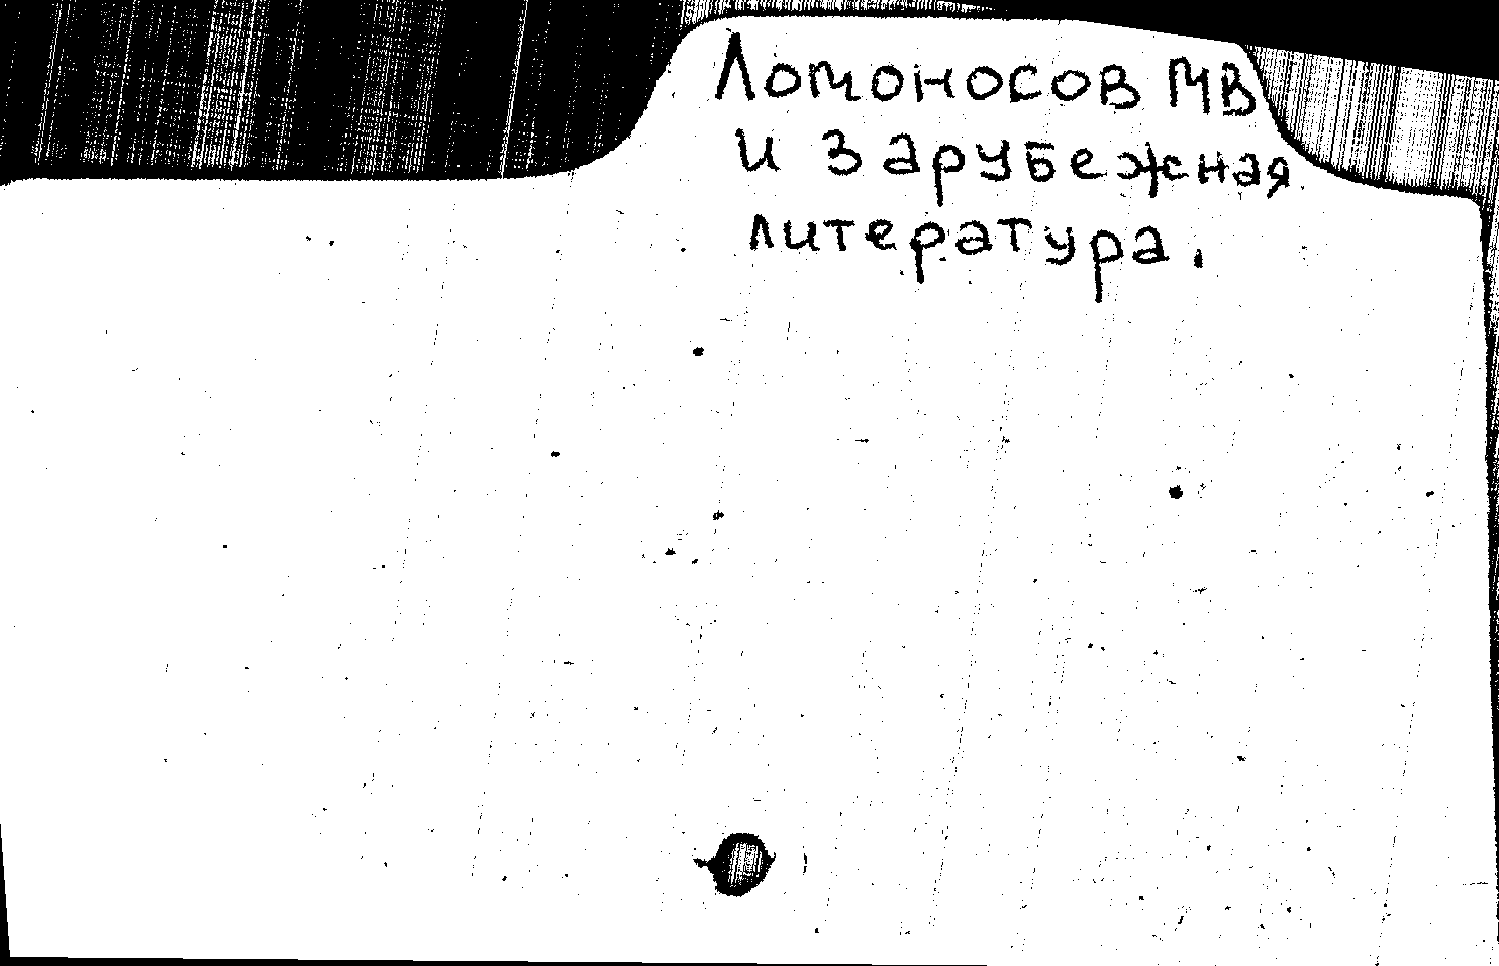 Ломоносов МВ
и зарубежная
литература.